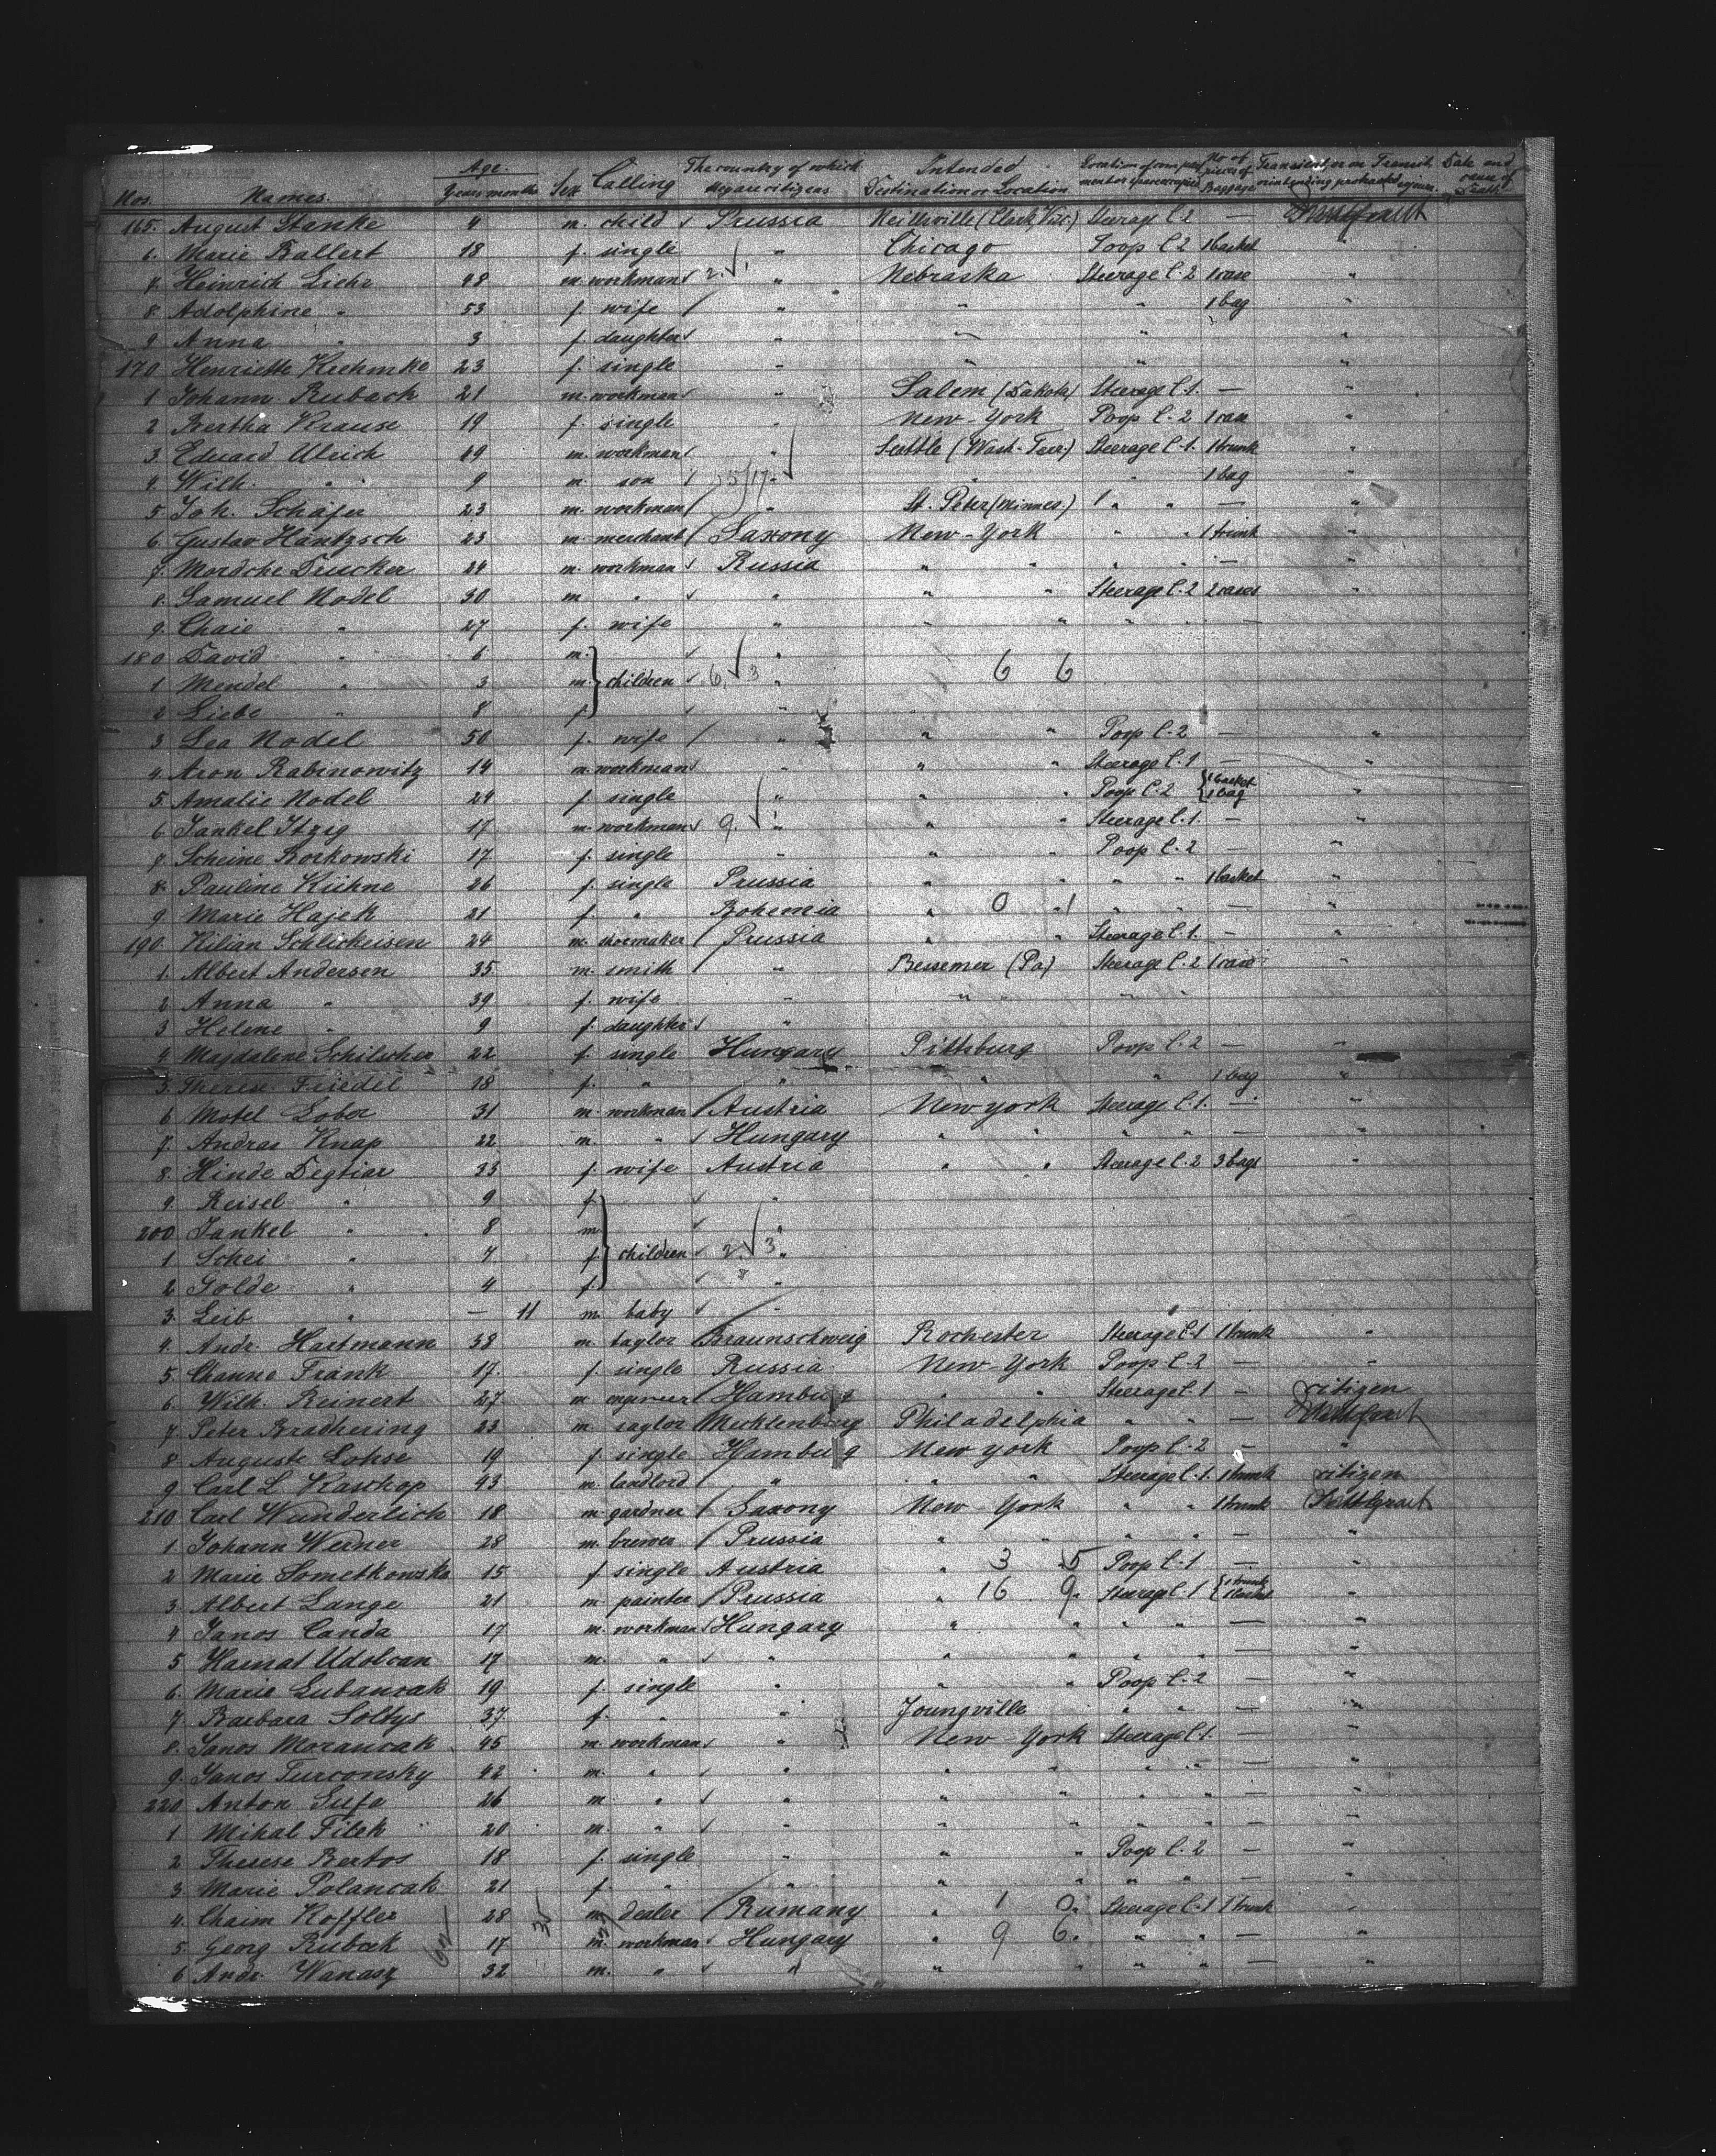 Nos. Names. Age. Years months Sex Calling The country of which they are citizens Intended Destination or Location Location of compartment or space occupied No of pieces of Baggage Transient or in Transit or intending protracted sojourn Date and cause of Death
165. August Stanke 4 m. child Prussia Neillsville (Clark, Wisc) Steerage C 2 —
6. Marie Ballert 18 f. single " Chicago Poop C. 2 1 basket "
7. Heinrich Liehr 48 m. workman " Nebraska Steerage C. 2 1 case "
8. Adolphine " 53 f. wife " " " 1 bag "
9. Anna " 3 f. daughter " " " "
170. Henriette Kuhmke 23 f. single " " " "
1 Johann Rubach 21 m. workman " Salem (Dakota) Steerage C. 1. — "
2 Bertha Krause 19 f. single " New-York Poop C. 2 1 case "
3. Eduard Ulrich 49 m. workman " Seattle (Wash. Terr.) Steerage C. 1. 1 trunk "
4. Wilh. " 9 m. son " " " 1 bag "
5. Joh. Schäfer 23 m. workman " St. Peter (Minnes.) " " — "
6. Gustav Hantzsch 23 m. merchant Saxony New-York " " 1 trunk "
7. Mordche Drucker 24 m. workman Russia " " " " — "
8. Samuel Nodel 30 m. " " " " Steerage C. 2 2 cases "
9. Chaie " 27 f. wife " " " " " —
180 David " 6 m. "
1 Mendel " 3 m. children 6. 3 " 6 6
2 Liebe " 8 f. "
3 Lea Nodel 50 f. wife " " " Poop C. 2 — "
4. Aron Rabinowitz 19 m. workman " " " Steerage C. 1 — "
5. Amalie Nodel 24 f. single " " " Poop C. 2 1 basket 1 bag "
6. Jankel Itzig 17 m. workman 9. " " " Steerage C. 1. — "
7. Scheine Borkowski 17 f. single " " " Poop C. 2 — "
8. Pauline Kühne 26 f. single Prussia " " " " 1 basket "
9 Marie Hajek 21 f. " Bohemia " 0 " 1 " " — "
190. Kilian Schlickeisen 24 m. shoemaker Prussia " " Steerage C. 1. — "
1. Albert Andersen 35. m. smith " Bessemer (Pa) Steerage C. 2 1 case "
2 Anna " 39 f. wife " " " "
3 Helene " 9 f. daughter "
4 Magdalene Schilscher 22 f. single Hungary Pittsburg Poop C. 2 — "
5. Therese Friedel 18 f. " " " " 1 bag "
6 Motel Lober 31 m. workman Austria New york Steerage C. 1. — "
7. Andras Knap 22 m. " Hungary " " " " — "
8. Hinde Degtiar 33 f. wife Austria " " Steerage C. 2 3 bags "
9. Reisel " 9 f. "
200 Jankel " 8 m. "
1 Schei " 7. f. children 2. 3 "
2 Golde " 4 f. "
3. Leib " — 11 m. baby " "
4. Andr. Hartmann 38 m. taylor Braunschweig Rochester Steerage C. 1 1 trunk "
5. Channe Frank 17. f. single Russia New-York Poop C. 2 — "
6. Wilh. Reinert 27. m. engineer Hamburg " " Steerage C. 1 — citizen
7. Peter Bradhering 23 m. saylor Mecklenburg Philadelphia " " —
8 Auguste Lohse 19 f. single Hamburg New york Poop C. 2 — "
9 Carl L Kaschop 43 m. landlord " " " Steerage C. 1. 1 trunk citizen
210 Carl Wunderlich 18 m. gardner Saxony New-York " " 1 trunk
1 Johann Werner 28 m. brewer Prussia " " " " — "
2 Marie Sometkowska 15 f single Austria " 3 5 Poop C. 1 — "
3 Albert Lange 21 m. painter Prussia " 16 9. Steerage C. 1 1 trunk 1 basket "
4 Janos Canda 17 m. workman Hungary " " " " — "
5 17 m. " " " " " " — "
6. Marie Lubancak 19 f. single " " " Poop C. 2 — "
7 Barbara Soltys 37 f. " " Youngville " " — "
8. Janos Morancak 45 m. workman " New-York Steerage C. 1. — "
9. Janos Turconsky 42 m. " " " " " " — "
220 Anton Sufa 26 m " " " " " " — "
1 Mihal Filek 20 m. " " " " " " — "
2 Therese Bertos 18 f. single " " " Poop C. 2 — "
3 Marie Polancak 21 f. " " " " " " — "
4. Chaim Koffler 28 m. dealer Rumany " 1 0. Steerage C. 1 1 trunk "
5. Georg Rubcak 17 m. workman Hungary " 9 6. " " — "
6 Andr. Wanasz 32 m. " " " " " " — "